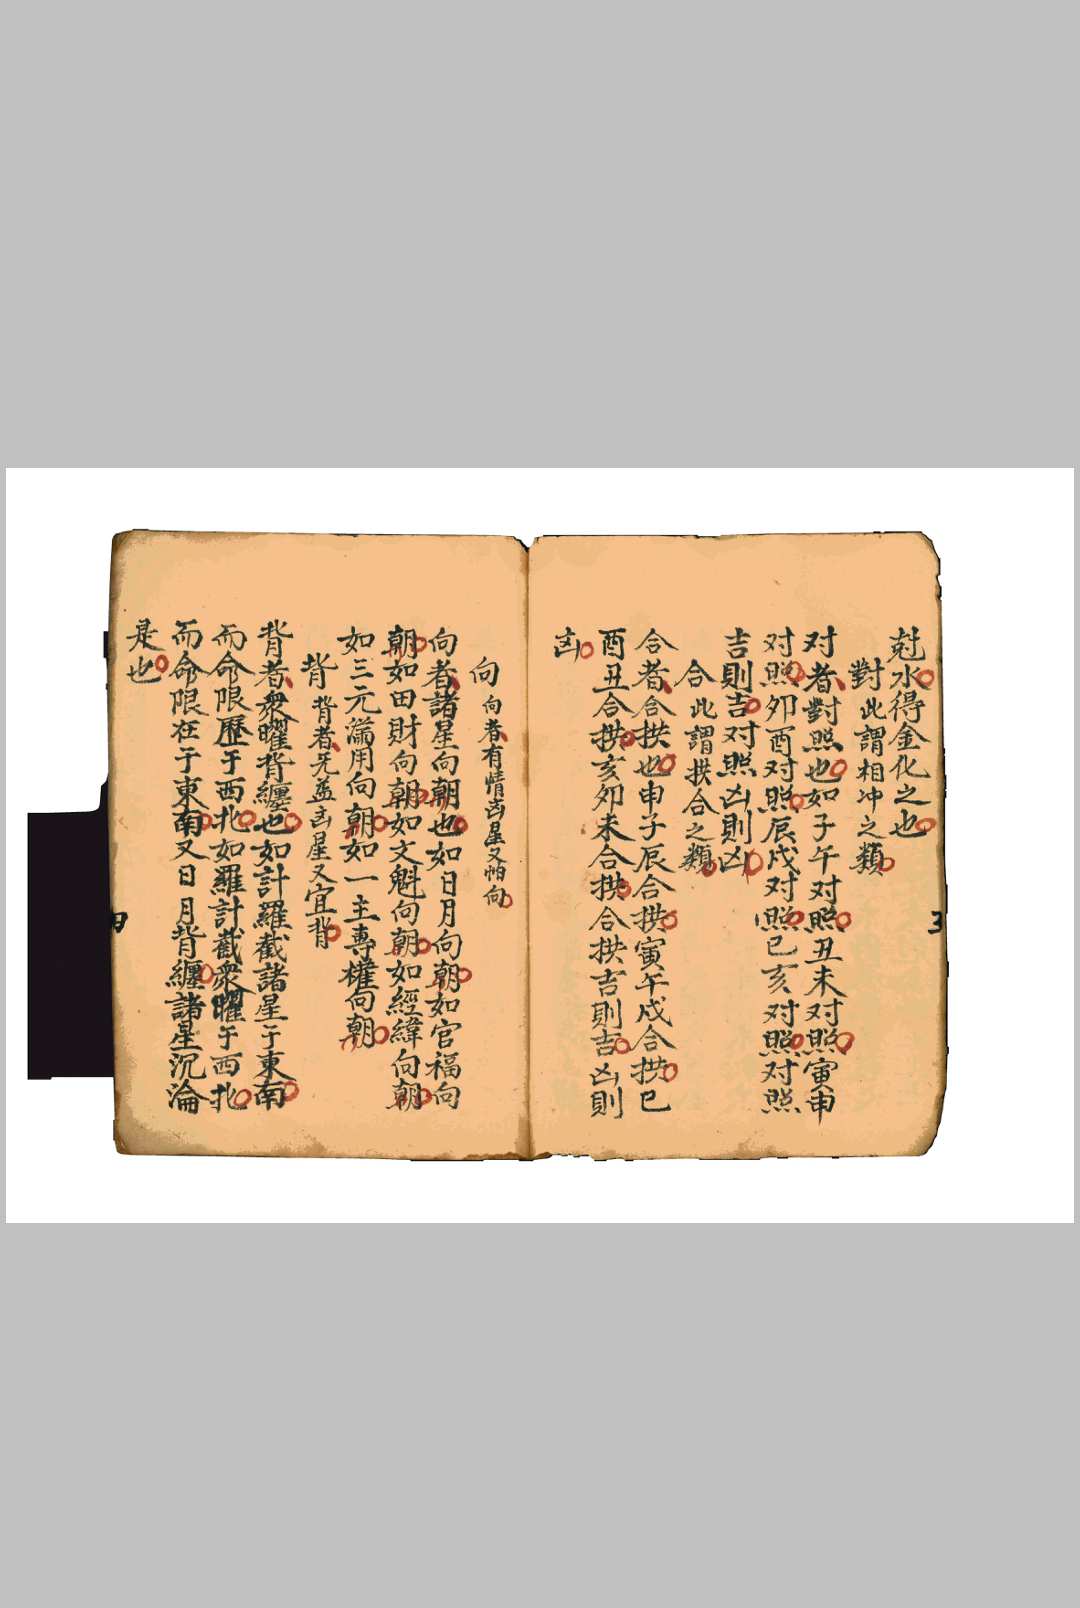 尅水得金化之也
對 此謂相冲之類
对者對照也如子午对照丑未对照寅申
对照夘酉对照辰戍对照巳亥对照对照
吉則吉对照凶則凶
合 此謂拱合之類
合者合拱也申子辰合拱寅午戍合拱巳
酉丑合拱亥夘未合拱合拱吉則吉凶則
凶
向 向者有情凶星又怕向
向者諸星向朝也如日月向朝如官福向
朝如田財向朝如文魁向朝如經緯向朝
如三元滿用向朝如一主專權向朝
背 背者无益凶星又宜背
背者衆曜背纏也如計羅截諸星于東南
而命限歷于西北如羅計截衆曜于西北
而命限在于東南又日月背纏諸星沉淪
是也